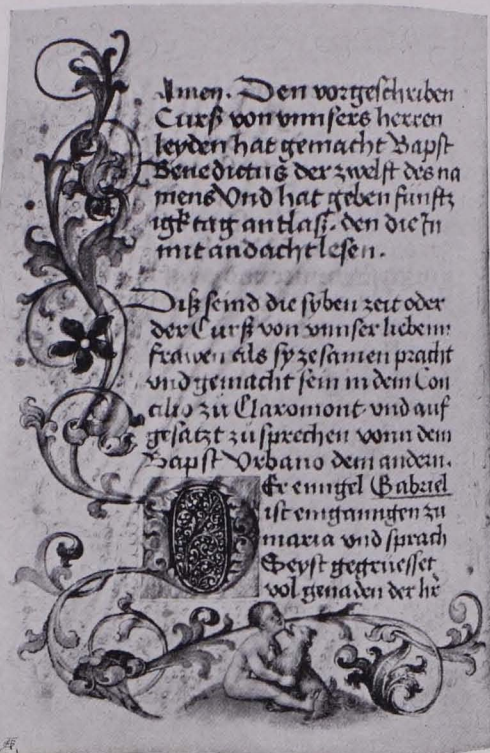 Amen. Den vorgeschriben
Curß von vnnsers herren
leyden hat gemacht Bapst
Benedictus der zwelft des na
mens Vnd hat geben funftz
igk tag antlaß. den die In
mit andacht lesen.
Diß seind die syben zeit oder
der Curß von vnnser liebenn
frawen als sy zesamen pracht
vnd gemacht sein in dem Con
cilio zu Claromont vnd auf
gesatzt zu sprechen vonn dem
Bapst Vrbano dem andern.
Der enngel Gabriel
ist eingangngen zu
maria vnd sprach
Seyst gegruesset
vol genaden der hr